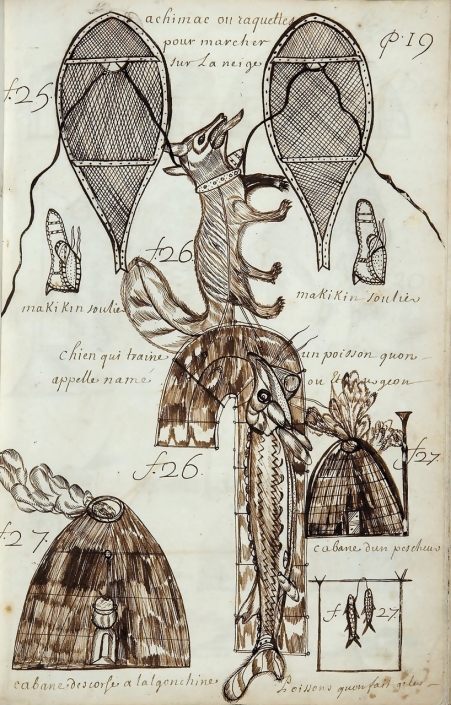 achimac ou raquettes
pour marcher
sur la neige
P. 19
f. 25.
f. 26
makikin soulie
makikin soulier
chien qui traine un poisson quon
appelle namé ou Eturgeon
f. 26.
f. 27.
f. 27.
cabane dun pescheur
f. 27
cabane descorse a lalgonchine
Poissons quon fait geler